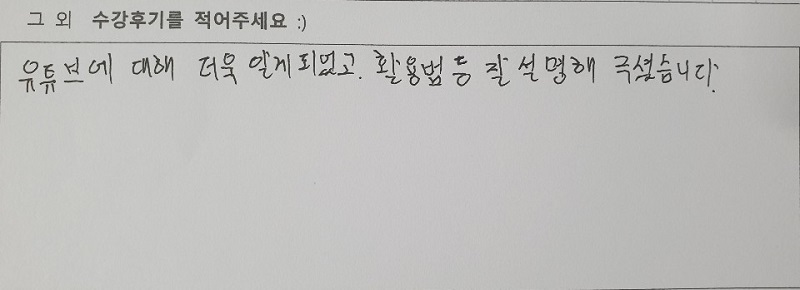 그 외 수강후기를 적어주세요 :)
유튜브에 대해 더욱 알게되었고. 활용법 등 잘 설명해 주셨습니다.